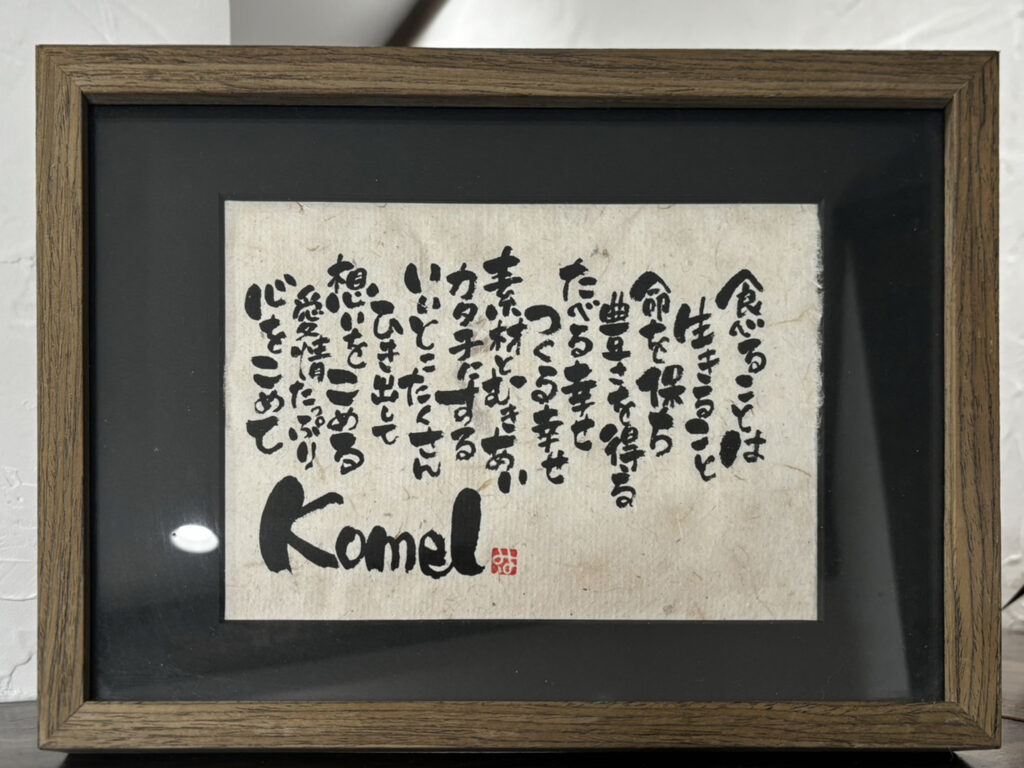 食べることは
生きること
命を保ち
豊さを得る
たべる幸せ
つくる幸せ
素材とむきあい
カタチにする
いいとこたくさん
ひき出して
想いをこめる
愛情たっぷり
心をこめて
Komel